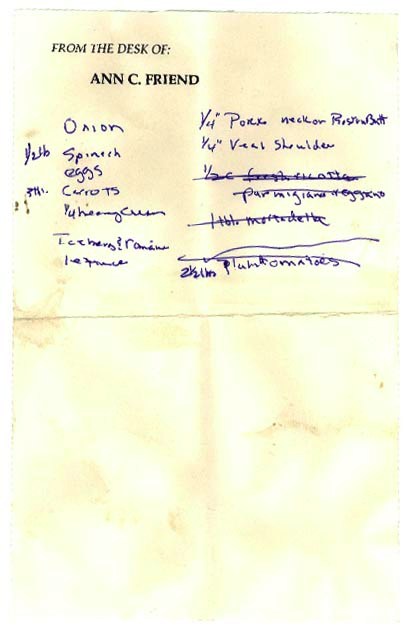 FROM THE DESK OF:
ANN C. FRIEND
Onion
1/2 lb Spinach
eggs
3tbl. Carrots
1/4 heavy Cream
Iceberg & romaine
lettuce
1/4" Pork neck or Boston Butt
1/4" Veal Shoulder
1/2 c fresh ricotta
parmigiano reggiano
1 tbl. mortadella
2 1/2 lbs plum tomatoes